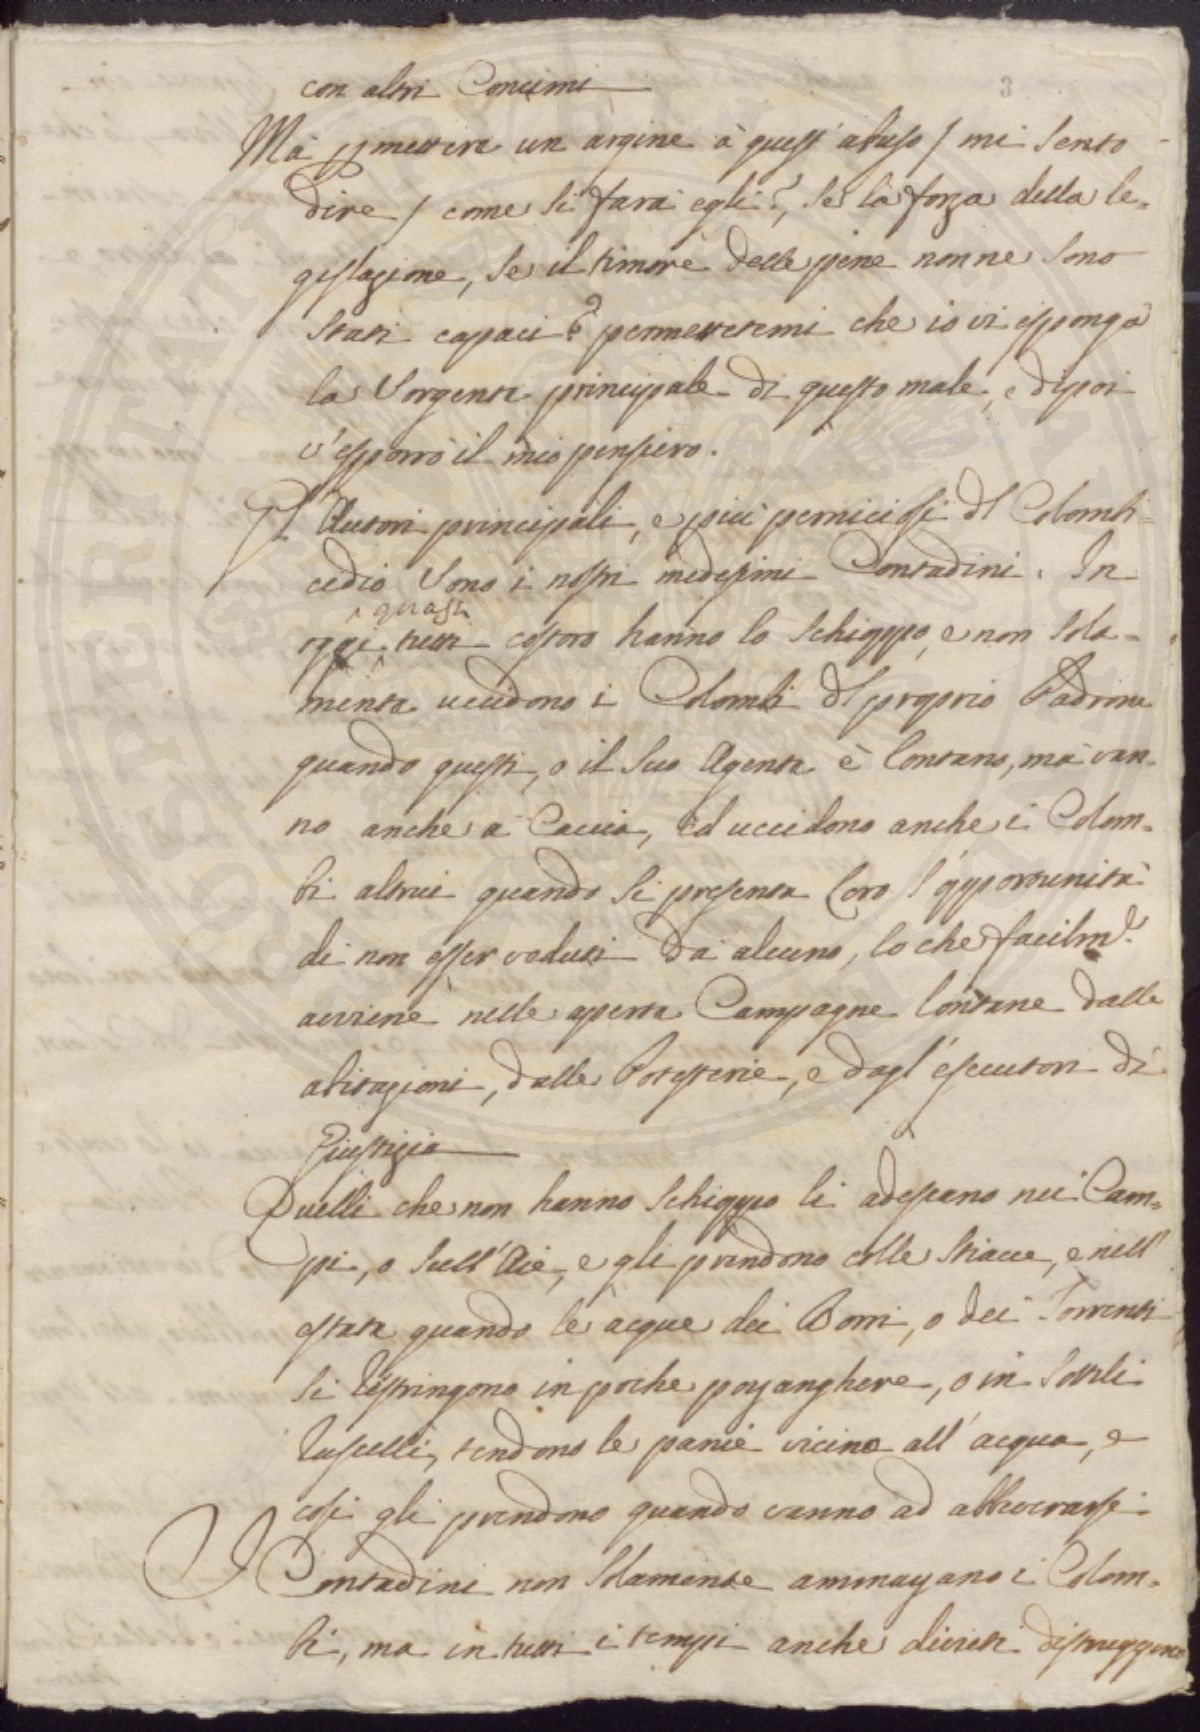 3
con altri Concimi
Mà p mettere un argine à quest' abuso / mi sento
dire / come si farà egli?, se la forza della le-
gislazione, se il timore delle pene non ne sono
stati capaci? permettetemi che io vi esponga
la sorgente principale di questo male, e dipoi
v'esporrò il mio pensiero.
Gl' Autori principali, e più perniciosi dl Colombi-
cedio sono i nostri medesimi Contadini. In
quasi
oggi tutti costoro hanno lo schioppo, e non sola-
mente uccidono i Colombi dl proprio Padrone
quando questi, o il suo Agente è lontano, mà van-
no anche a Caccia, ed uccidono anche i Colom-
bi altrui quando si presenta loro l'opportunità
di non esser veduti dà alcuno, lo che facilmᵉ.
avviene nelle aperte Campagne lontane dalle
abitazioni, dalle Potesterie, e dagl' esecutori di
Giustizia
Quelli che non hanno schioppo li adescano nei Cam-
pi, o sull' Aie, e gli prendono colle stiacce, e nell'
estate quando le acque dei Borri, o dei Torrenti
si ristringono in poche pozzanghere, o in sottili
ruscelli, tendono le panie vicino all' acqua, e
così gli prendono quando vanno ad abbeverarsi.
I Contadini non solamente ammazzano i Colom-
bi, ma in tutti i tempi anche divieti distruggono
PROSPERITATI PVBLICAE AVGENDAE